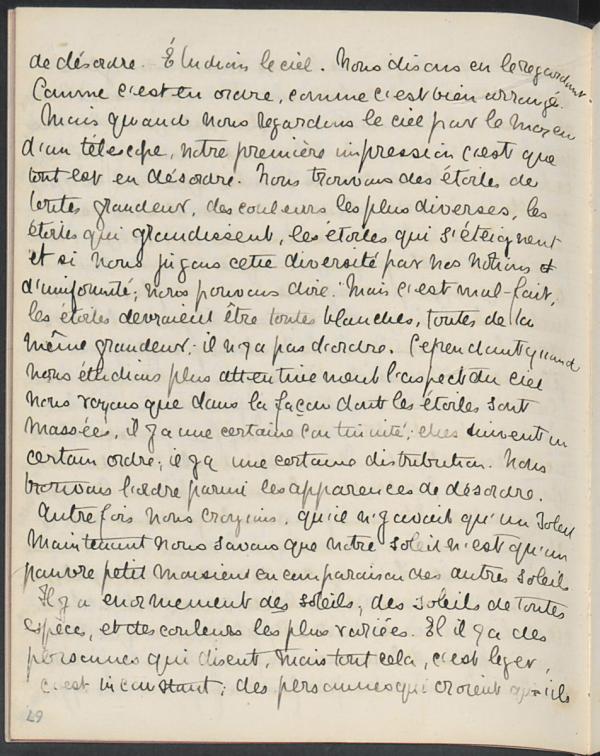 de désordre. Étudions le ciel. Nous disons en le regardant.
Comme c'est en ordre, comme c'est bien arrangé.
Mais quand nous regardons le ciel par le moyen
d'un télescope, notre première impression c'est que
tout est en désordre. Nous trouvons des étoiles de
toutes grandeur, des couleurs les plus diverses, les
étoiles qui grandissent, les étoiles qui s'éteignent
et si nous jugons cette diversité par nos notions
d'uniformité; nous pouvons dire. "Mais c'est mal-fait,
les étoiles devraient être toutes blanches, toutes de la
même grandeur; il n'y a pas d'ordre. Cependant quand
nous étudions plus attentivement l'aspect du ciel
nous voyons que dans la façon dont les étoiles sont
massées, il y a une certaine continuité; elles suivent un
certain ordre; il y a une certaine distribution. Nous
trouvons l'ordre parmi les apparences de désordre.
Autrefois nous croyions, qu'il n'y avait qu'un soleil
Maintenant nous savons que notre soleil n'est qu'un
pauvre petit monsieur en comparaison des autres soleils
Il y a enormement des soleils, des soleils de toutes
espèces, et des couleurs les plus variées. Et il y a des
personnes qui disent, mais tout cela, c'est leger,
c'est inconstant; des personnes qui croient qu'ils
67